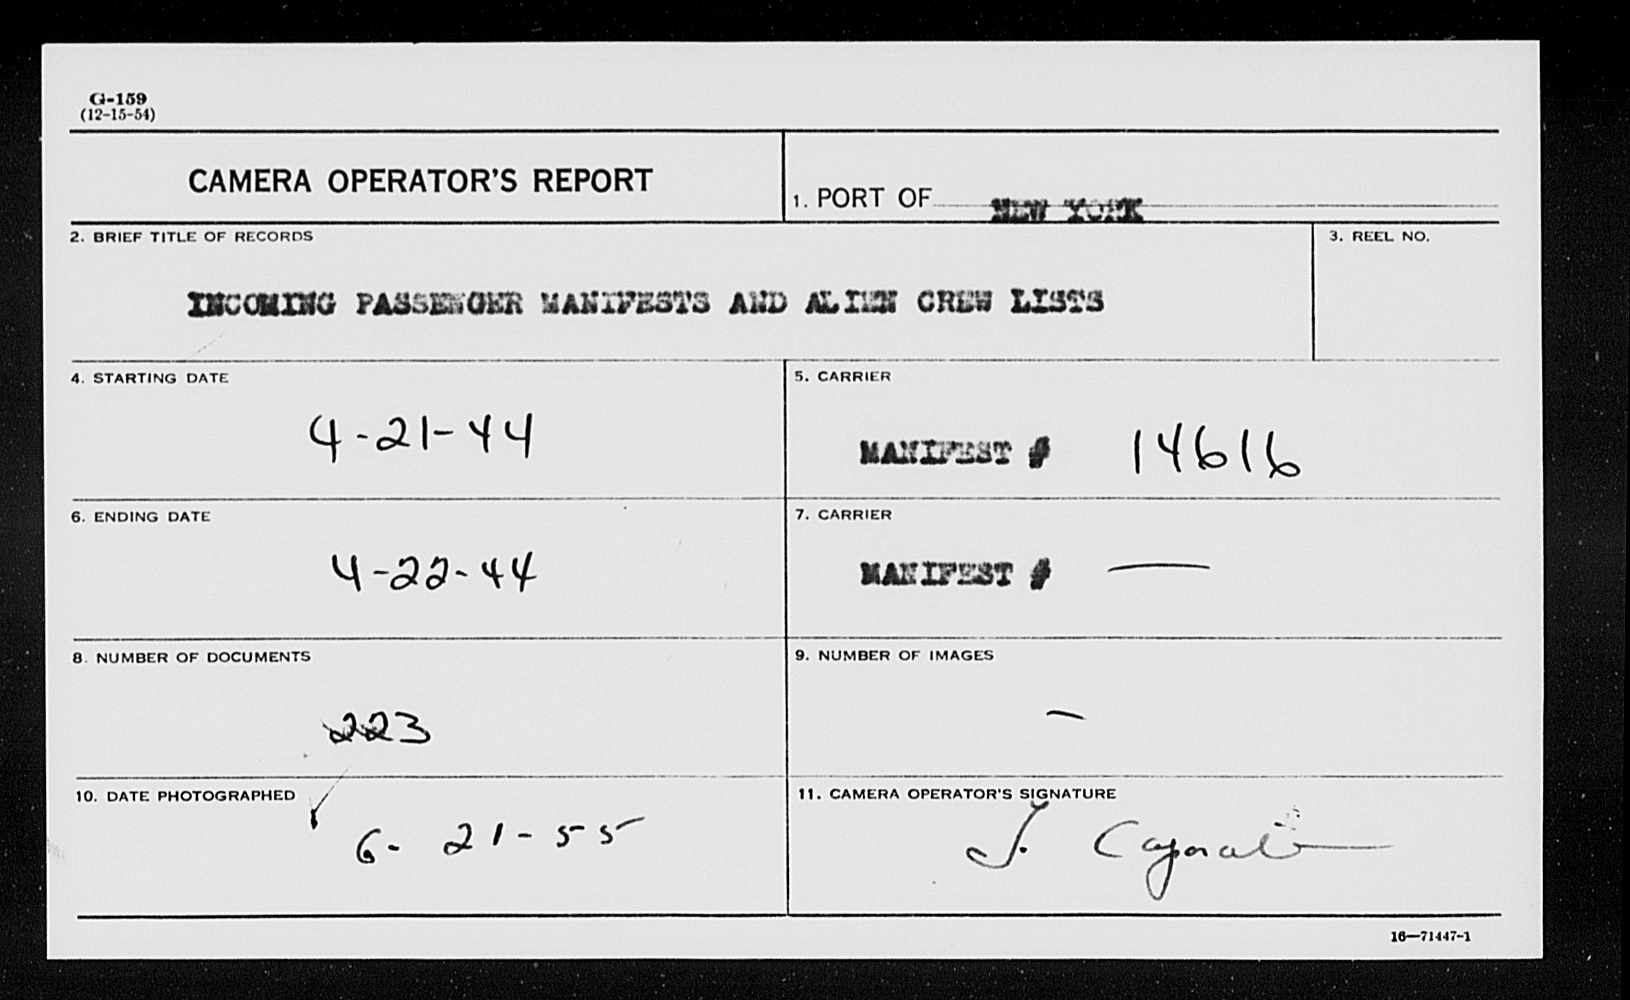 G-159
(12-15-54)
CAMERA OPERATOR'S REPORT
1. PORT OF NEW YORK
2. BRIEF TITLE OF RECORDS
3. REEL NO.
INCOMING PASSENGER MANIFESTS AND ALIEN CREW LISTS
4. STARTING DATE
5. CARRIER
4-21-44
MANIFEST # 14616
6. ENDING DATE
7. CARRIER
4-22-44
MANIFEST # —
8. NUMBER OF DOCUMENTS
9. NUMBER OF IMAGES
223
-
10. DATE PHOTOGRAPHED
11. CAMERA OPERATOR'S SIGNATURE
6-21-55
J.
16—71447-1